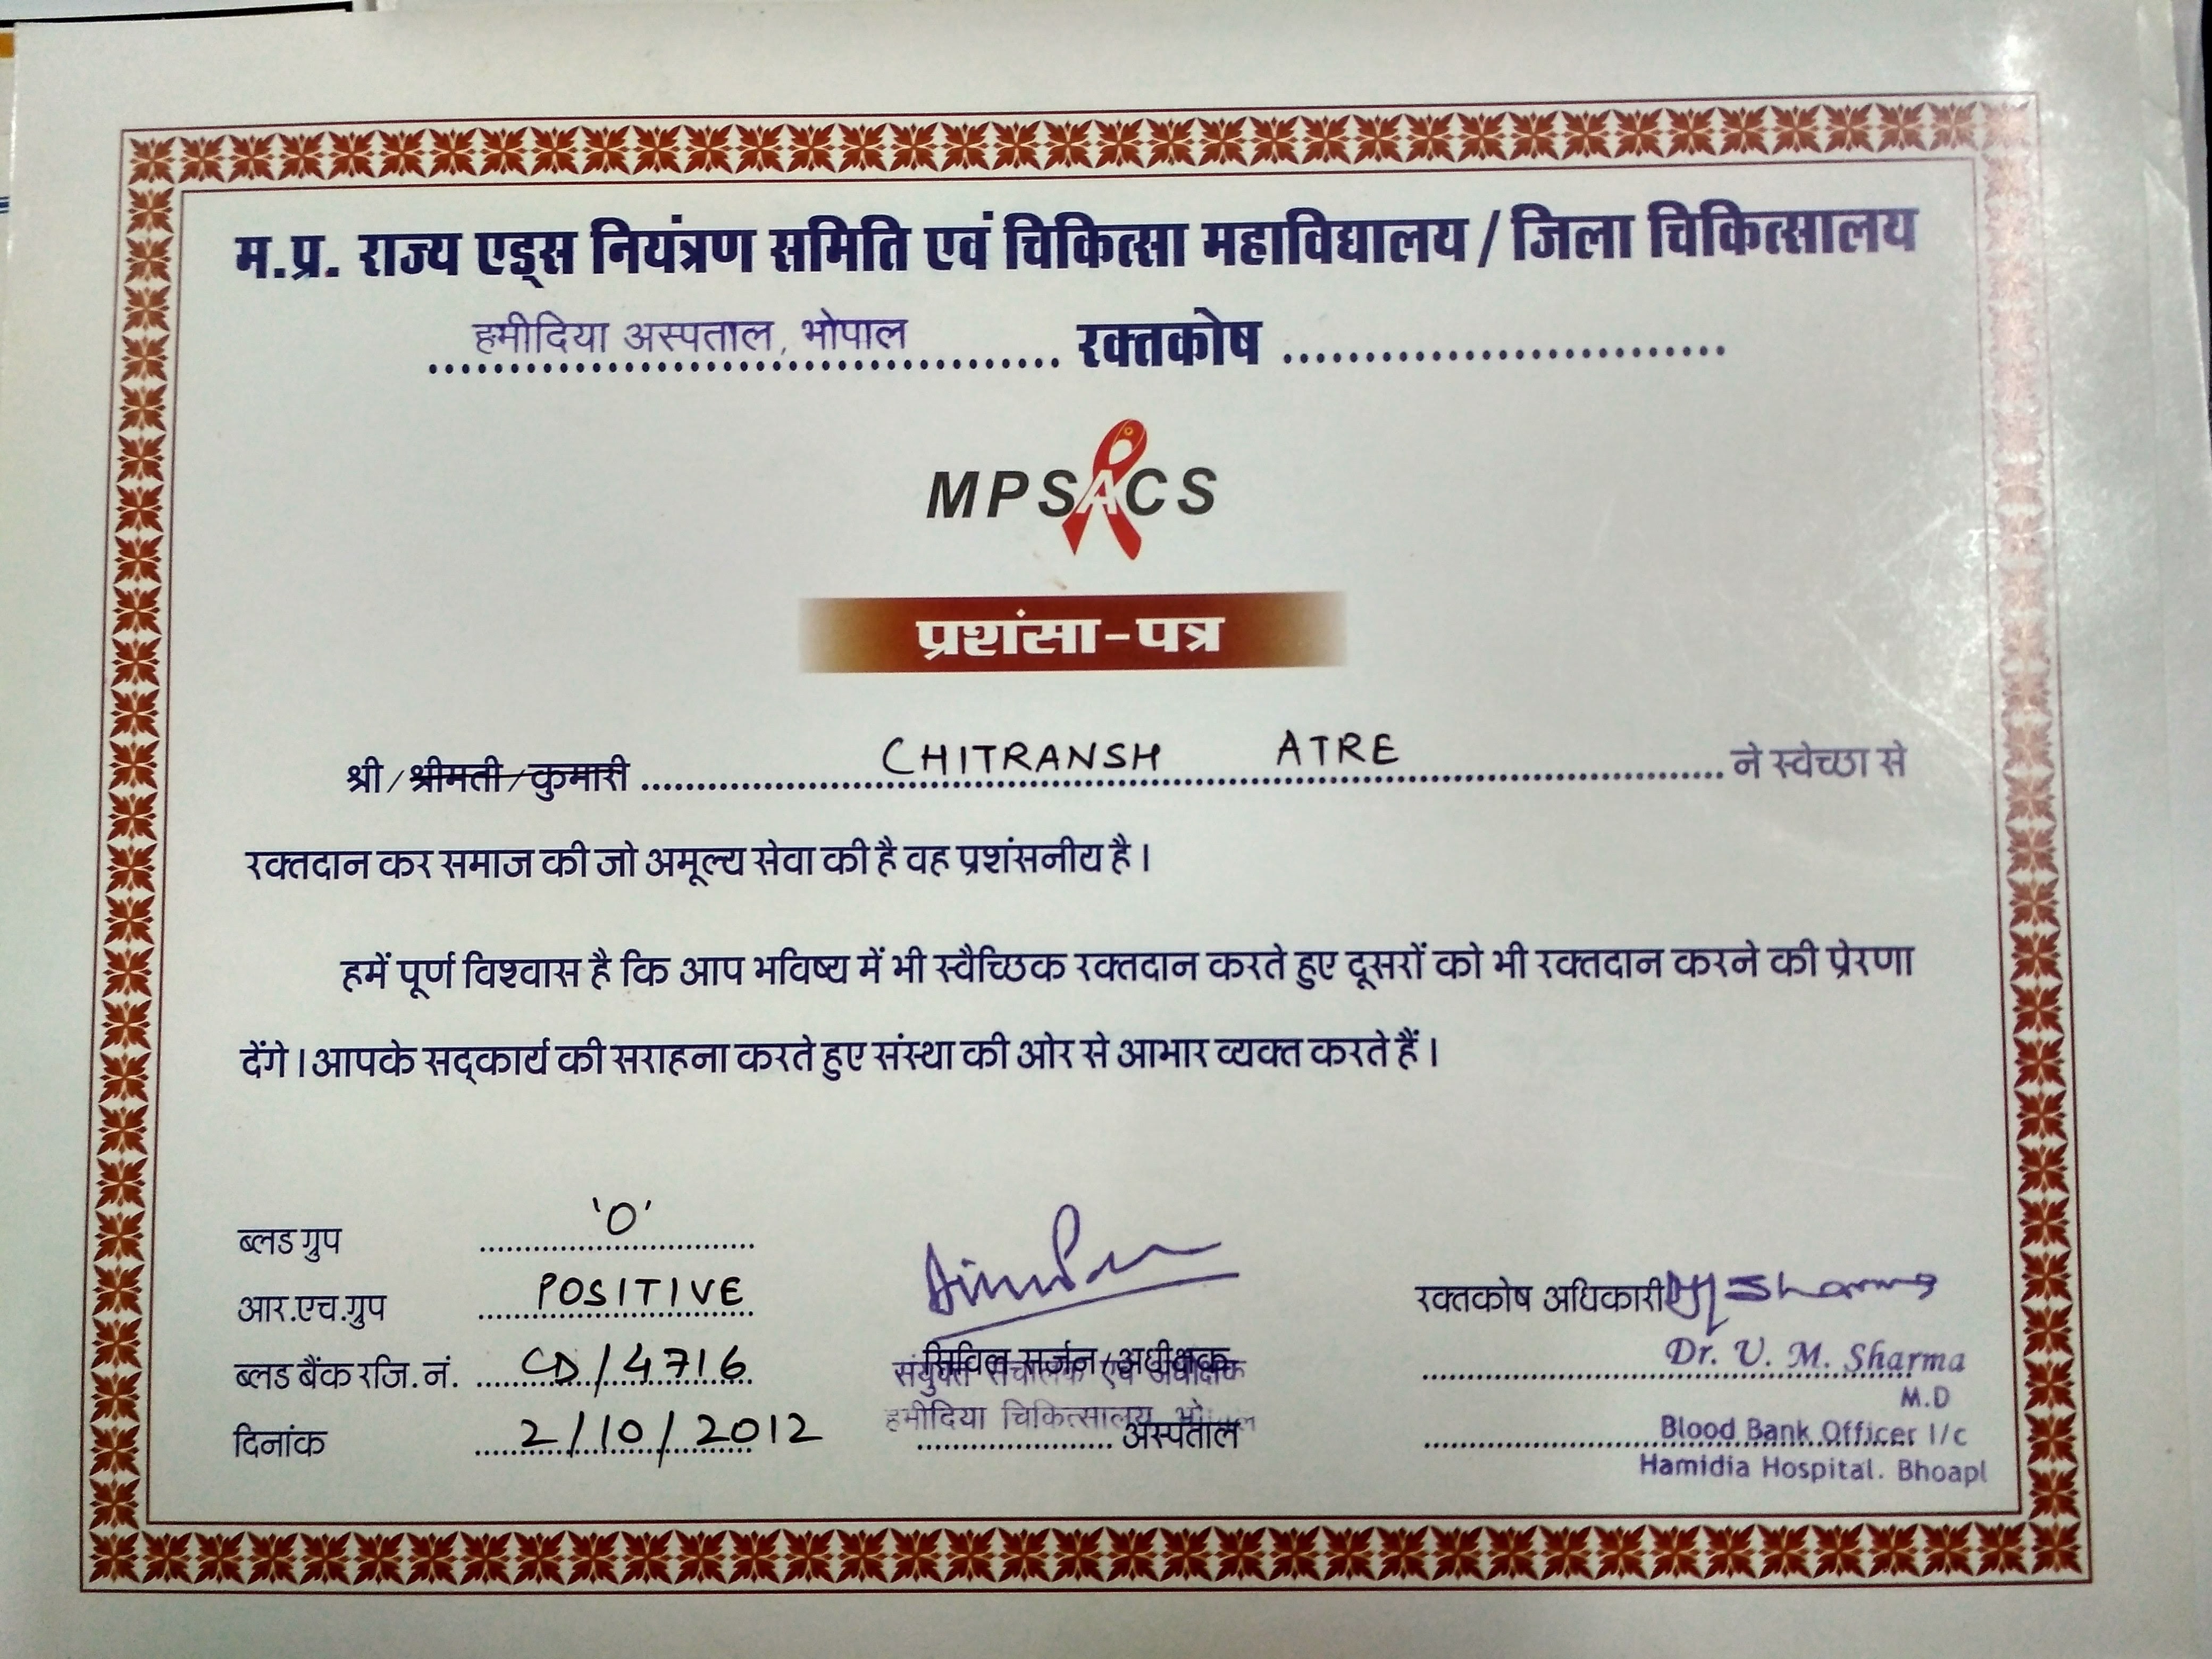 म.प्र. राज्य एड्स नियंत्रण समिति एवं चिकित्सा महाविद्यालय / जिला चिकित्सालय
हमीदिया अस्पताल, भोपाल रक्तकोष
MPSACS
प्रशंसा-पत्र
श्री / श्रीमती / कुमारी CHITRANSH ATRE ने स्वेच्छा से
रक्तदान कर समाज की जो अमूल्य सेवा की है वह प्रशंसनीय है।
हमें पूर्ण विश्वास है कि आप भविष्य में भी स्वैच्छिक रक्तदान करते हुए दूसरों को भी रक्तदान करने की प्रेरणा
देंगे। आपके सद्कार्य की सराहना करते हुए संस्था की ओर से आभार व्यक्त करते हैं।
ब्लड ग्रुप 'O'
आर.एच.ग्रुप POSITIVE
ब्लड बैंक रजि. नं. CD/4716
दिनांक 2/10/2012
सिविल सर्जन / अधीक्षक
संयुक्त संचालक एवं अधीक्षक
हमीदिया चिकित्सालय,
अस्पताल
रक्तकोष अधिकारी Sharma
Dr. U. M. Sharma
M.D
Blood Bank Officer I/c
Hamidia Hospital. Bhoapl